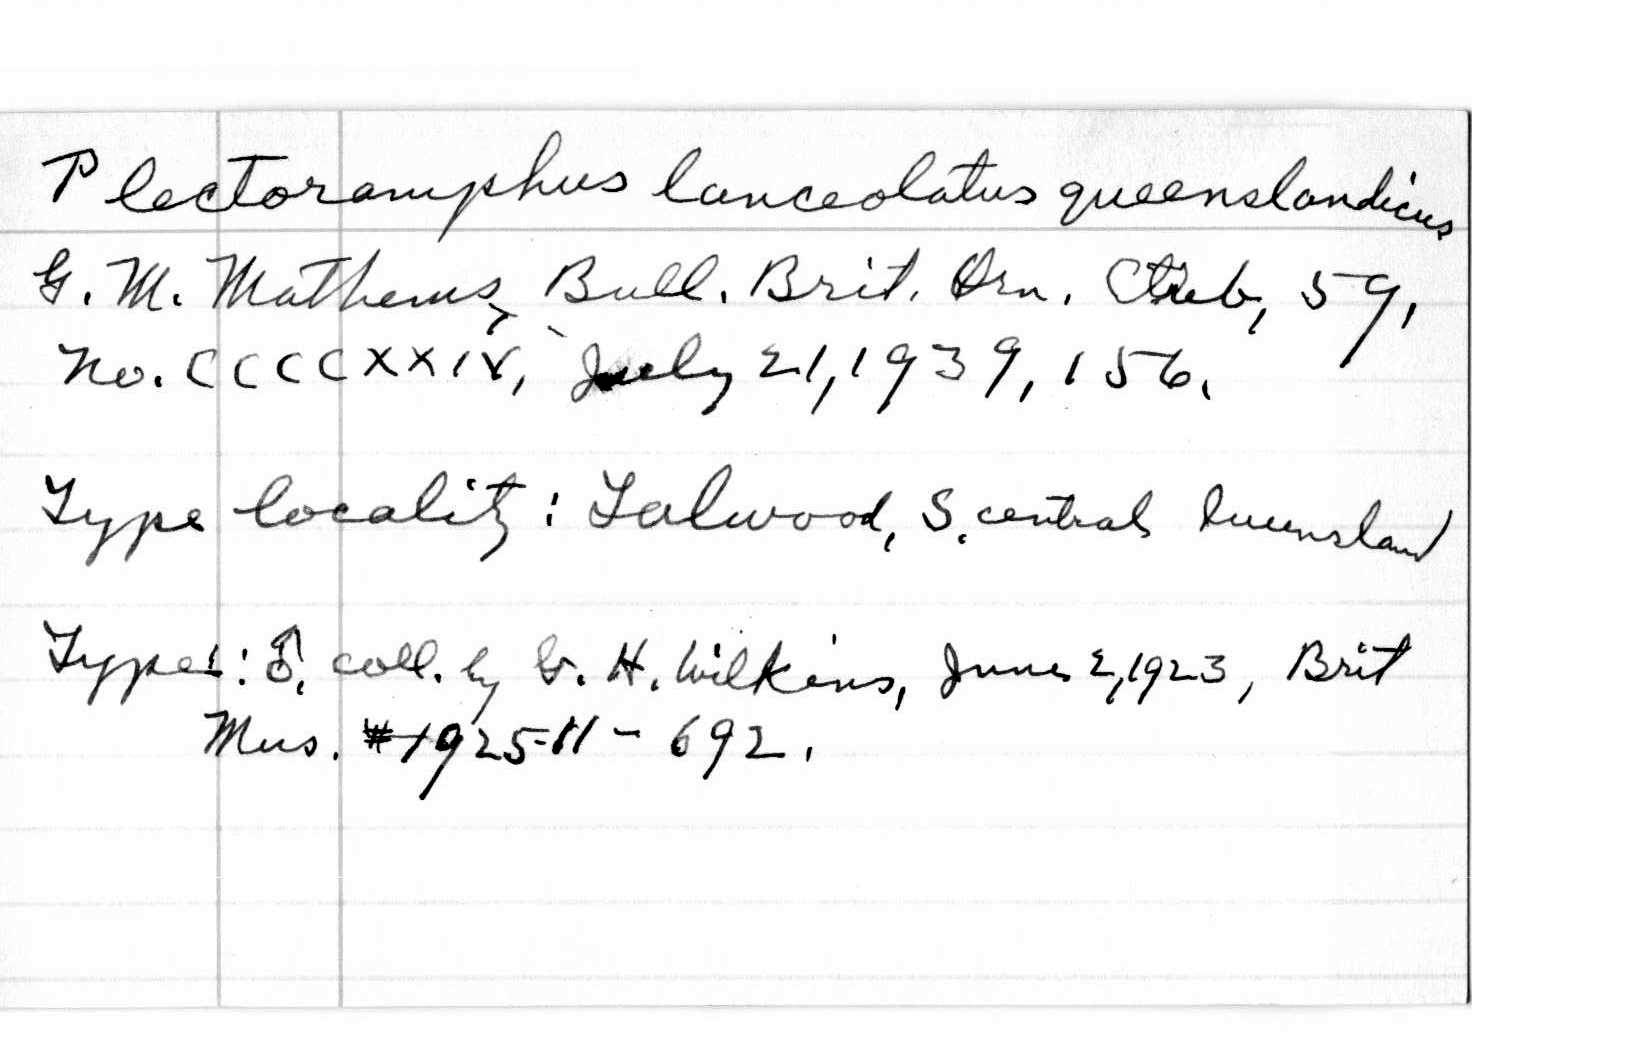 Plectoramphus lanceolatus queenslandicus
G. M. Mathews, Bull. Brit. Orn. Club, 59,
No. CCCCXXIV, July 21, 1939, 156.
Type locality: Talwood, S. central Queensland
Type: ♂, coll. by G. H. Wilkins, June 2, 1923, Brit
Mus. #1925-11-692.